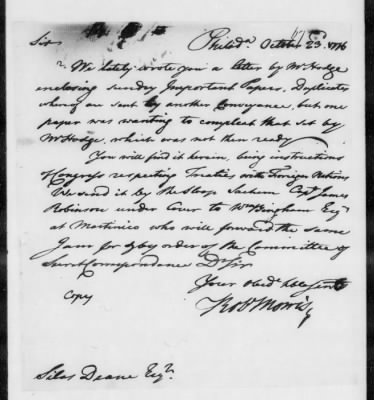 Philada. October 23d. 1776
Sir
We lately wrote you a letter by Mr Hodge
enclosing sundry Important Papers, Duplicates
whereof are sent by another Conveyance, but one
paper was wanting to compleat that set by
Mr Hodge, which was not then ready
You will find it herein, being instructions
of Congress respecting Treaties with Foreign Nations
We send it by the Sloop Sachem Capt James
Robinson under Cover to Wm Bingham Esqr
at Martinico who will forward the same
I am for & by order of the Committee of
Secret Correspondance Dr Sir
Your Obedt
Robt Morris
Copy
Silas Deane Esqr.